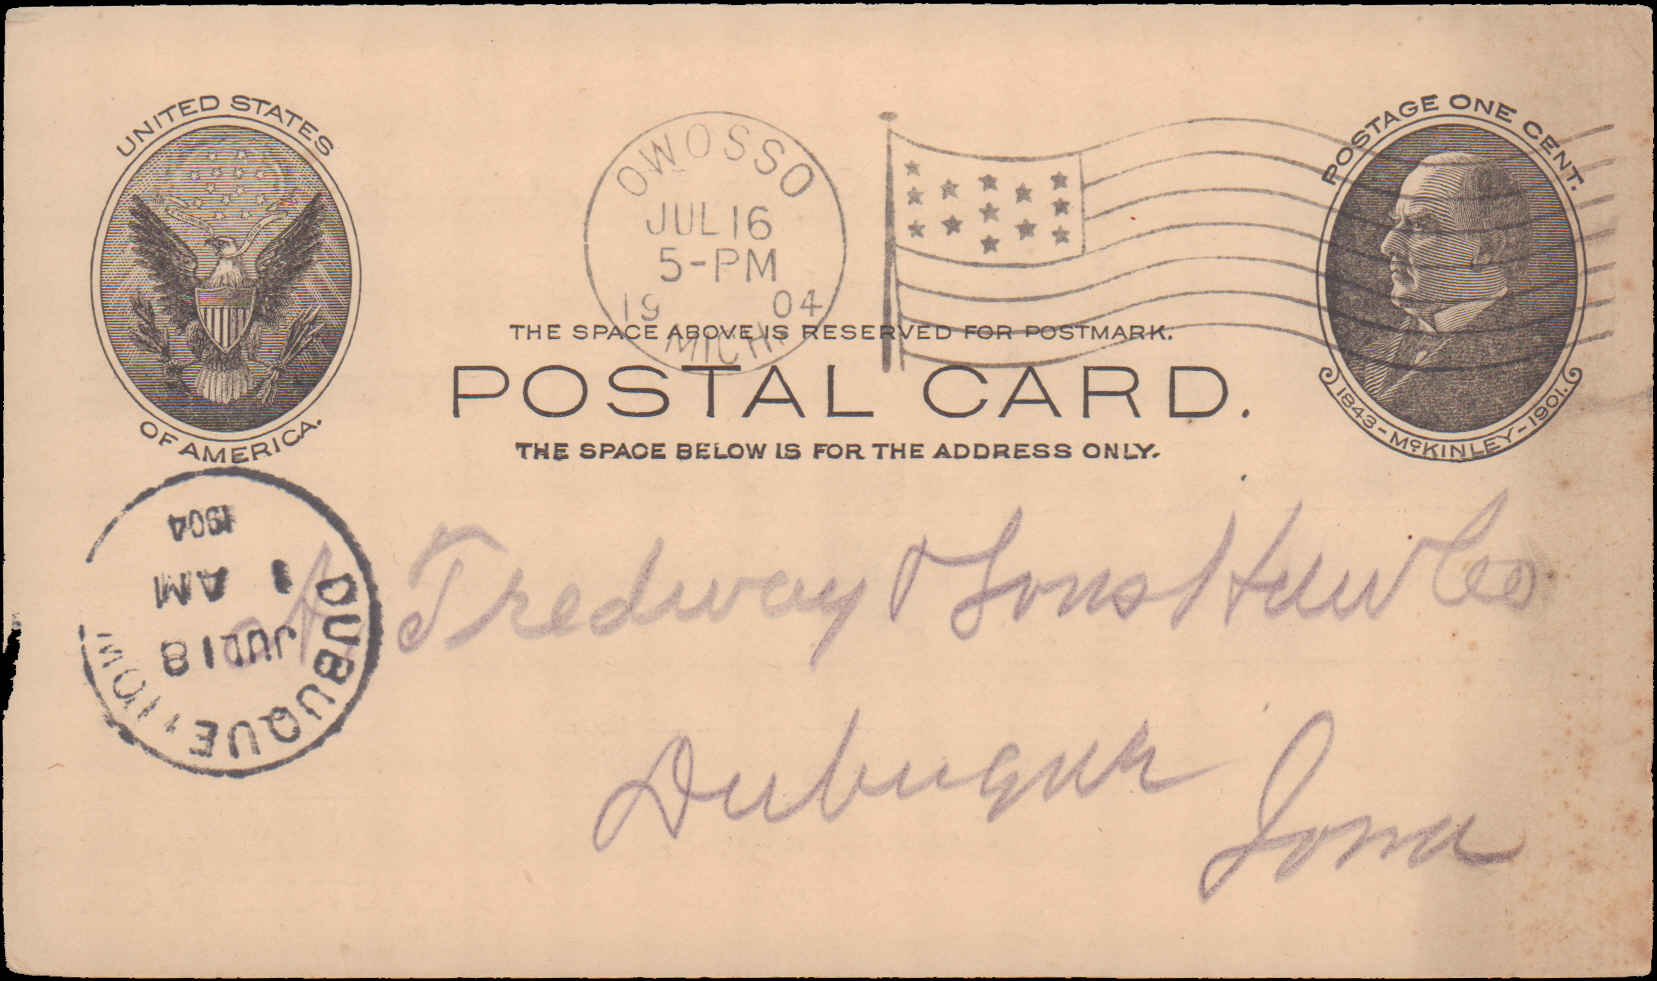 UNITED STATES
OF AMERICA.
OWOSSO
JUL 16
5-PM
1904
MICH.
POSTAGE ONE CENT.
1843-McKINLEY-1901.
THE SPACE ABOVE IS RESERVED FOR POSTMARK.
POSTAL CARD.
THE SPACE BELOW IS FOR THE ADDRESS ONLY.
DUBUQUE, IOWA
JUL 18
1 AM
1904
A Tredway & Sons Hdw Co
Dubuque
Iowa